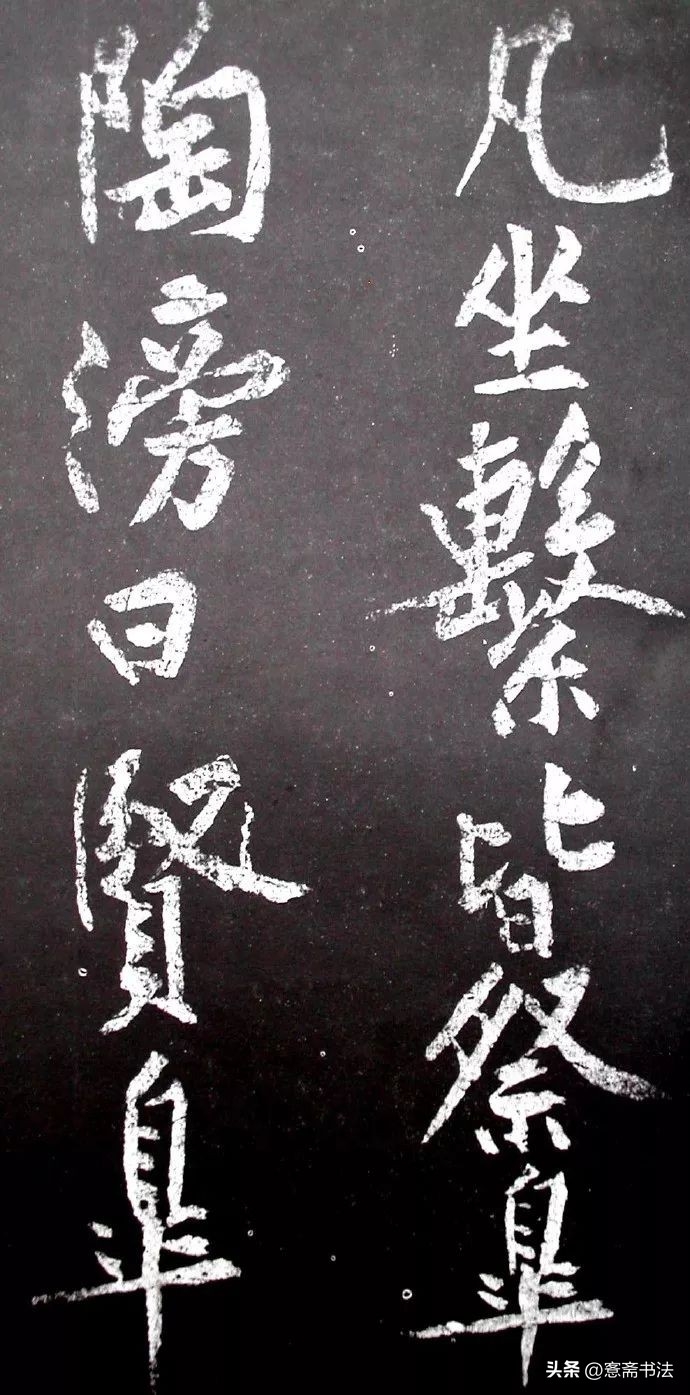 凡坐繫皆祭皐
陶滂曰賢皐
头条@愙斋书法